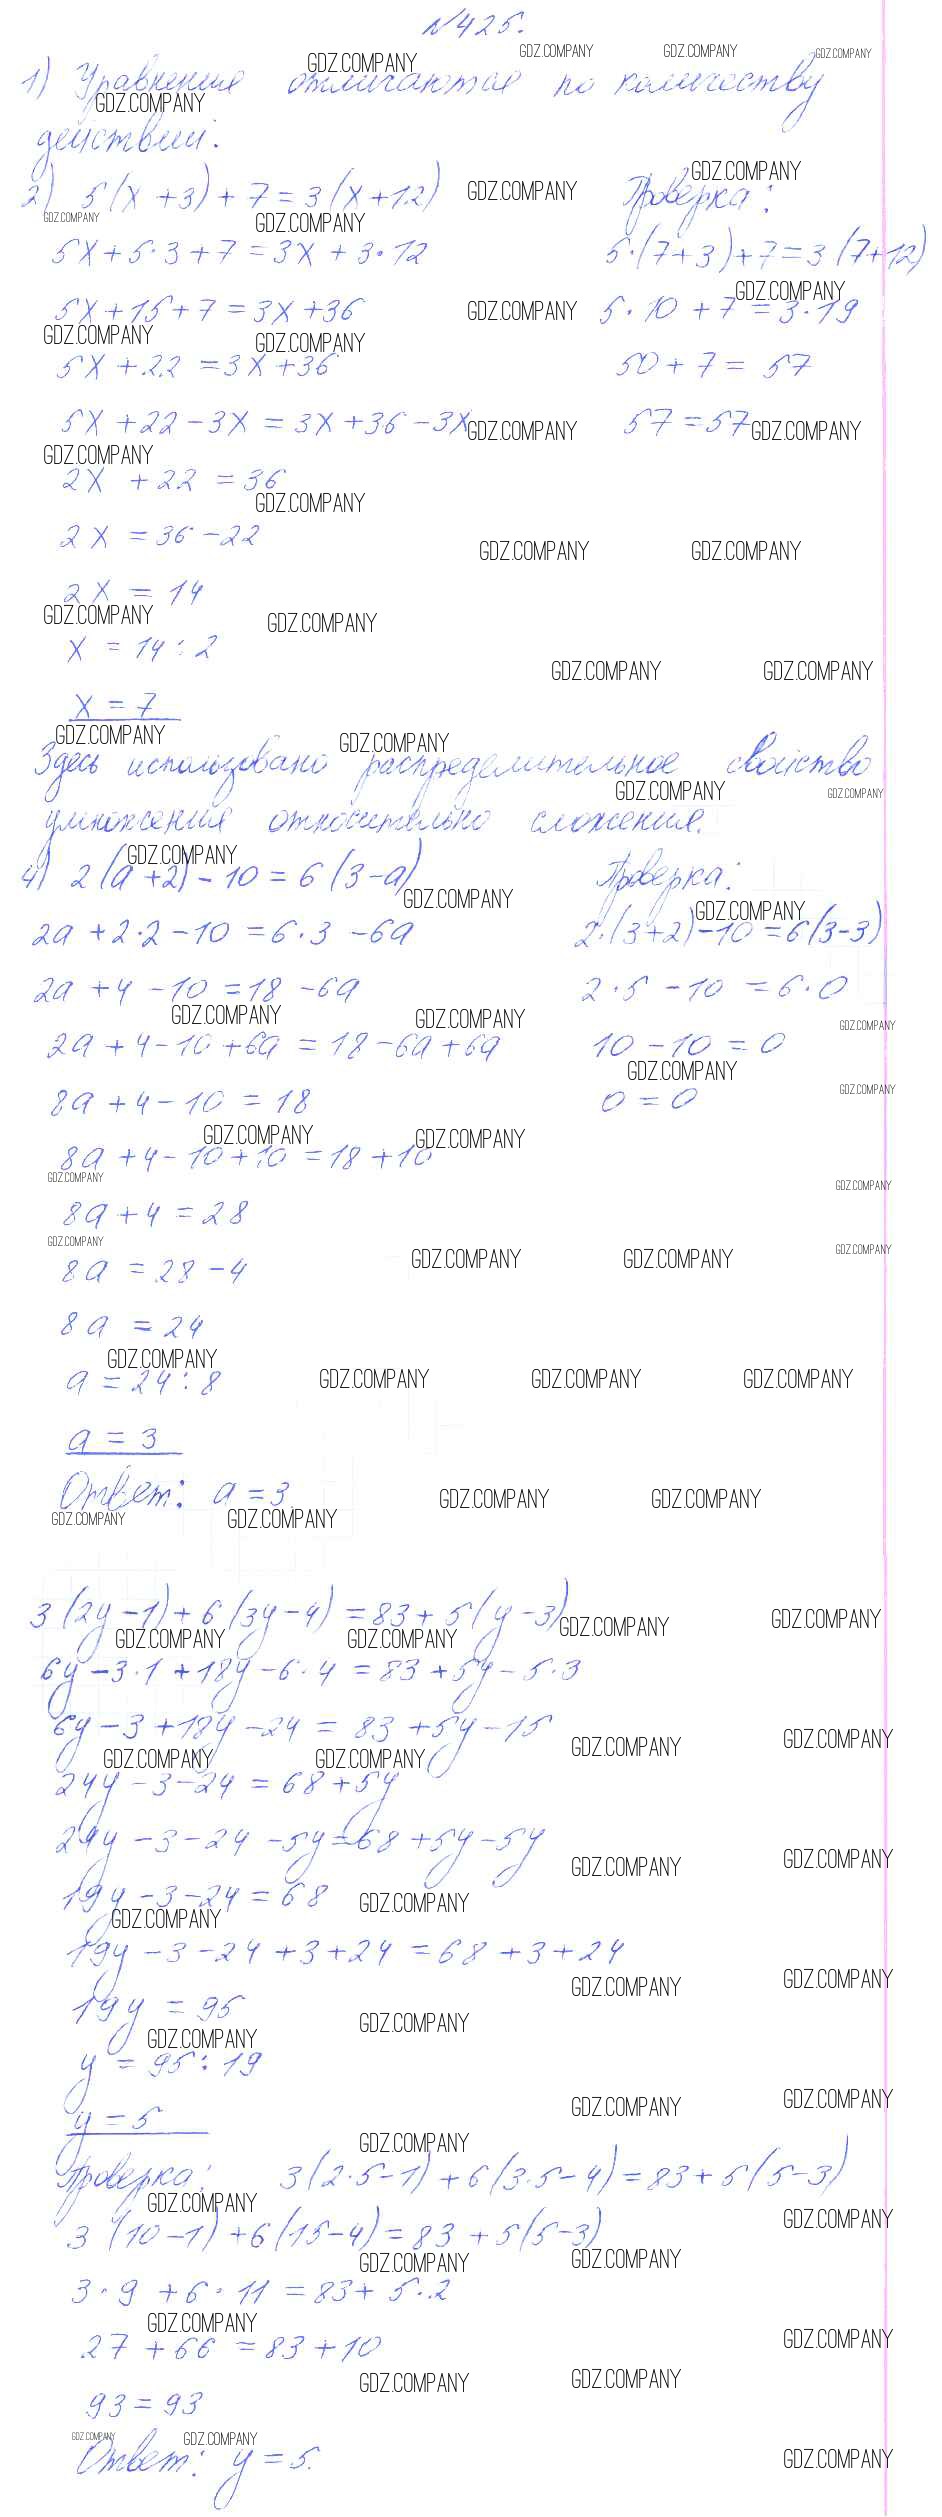 №425.
1) Уравнения отличаются по количеству
действий.
2) 5(x+3)+7=3(x+12)
5x+5·3+7=3x+3·12
5x+15+7=3x+36
5x+22=3x+36
5x+22-3x=3x+36-3x
2x+22=36
2x=36-22
2x=14
x=14:2
x=7
Проверка:
5·(7+3)+7=3(7+12)
5·10+7=3·19
50+7=57
57=57
Здесь использовано распределительное свойство
умножения относительно сложения.
4) 2(a+2)-10=6(3-a)
2a+2·2-10=6·3-6a
2a+4-10=18-6a
2a+4-10+6a=18-6a+6a
8a+4-10=18
8a+4-10+10=18+10
8a+4=28
8a=28-4
8a=24
a=24:8
a=3
Ответ: a=3
Проверка:
2·(3+2)-10=6(3-3)
2·5-10=6·0
10-10=0
0=0
3(2y-1)+6(3y-4)=83+5(y-3)
6y-3·1+18y-6·4=83+5y-5·3
6y-3+18y-24=83+5y-15
24y-3-24=68+5y
24y-3-24-5y=68+5y-5y
19y-3-24=68
19y-3-24+3+24=68+3+24
19y=95
y=95:19
y=5
Проверка: 3(2·5-1)+6(3·5-4)=83+5(5-3)
3(10-1)+6(15-4)=83+5(5-3)
3·9+6·11=83+5·2
27+66=83+10
93=93
Ответ: y=5.
GDZ.COMPANY